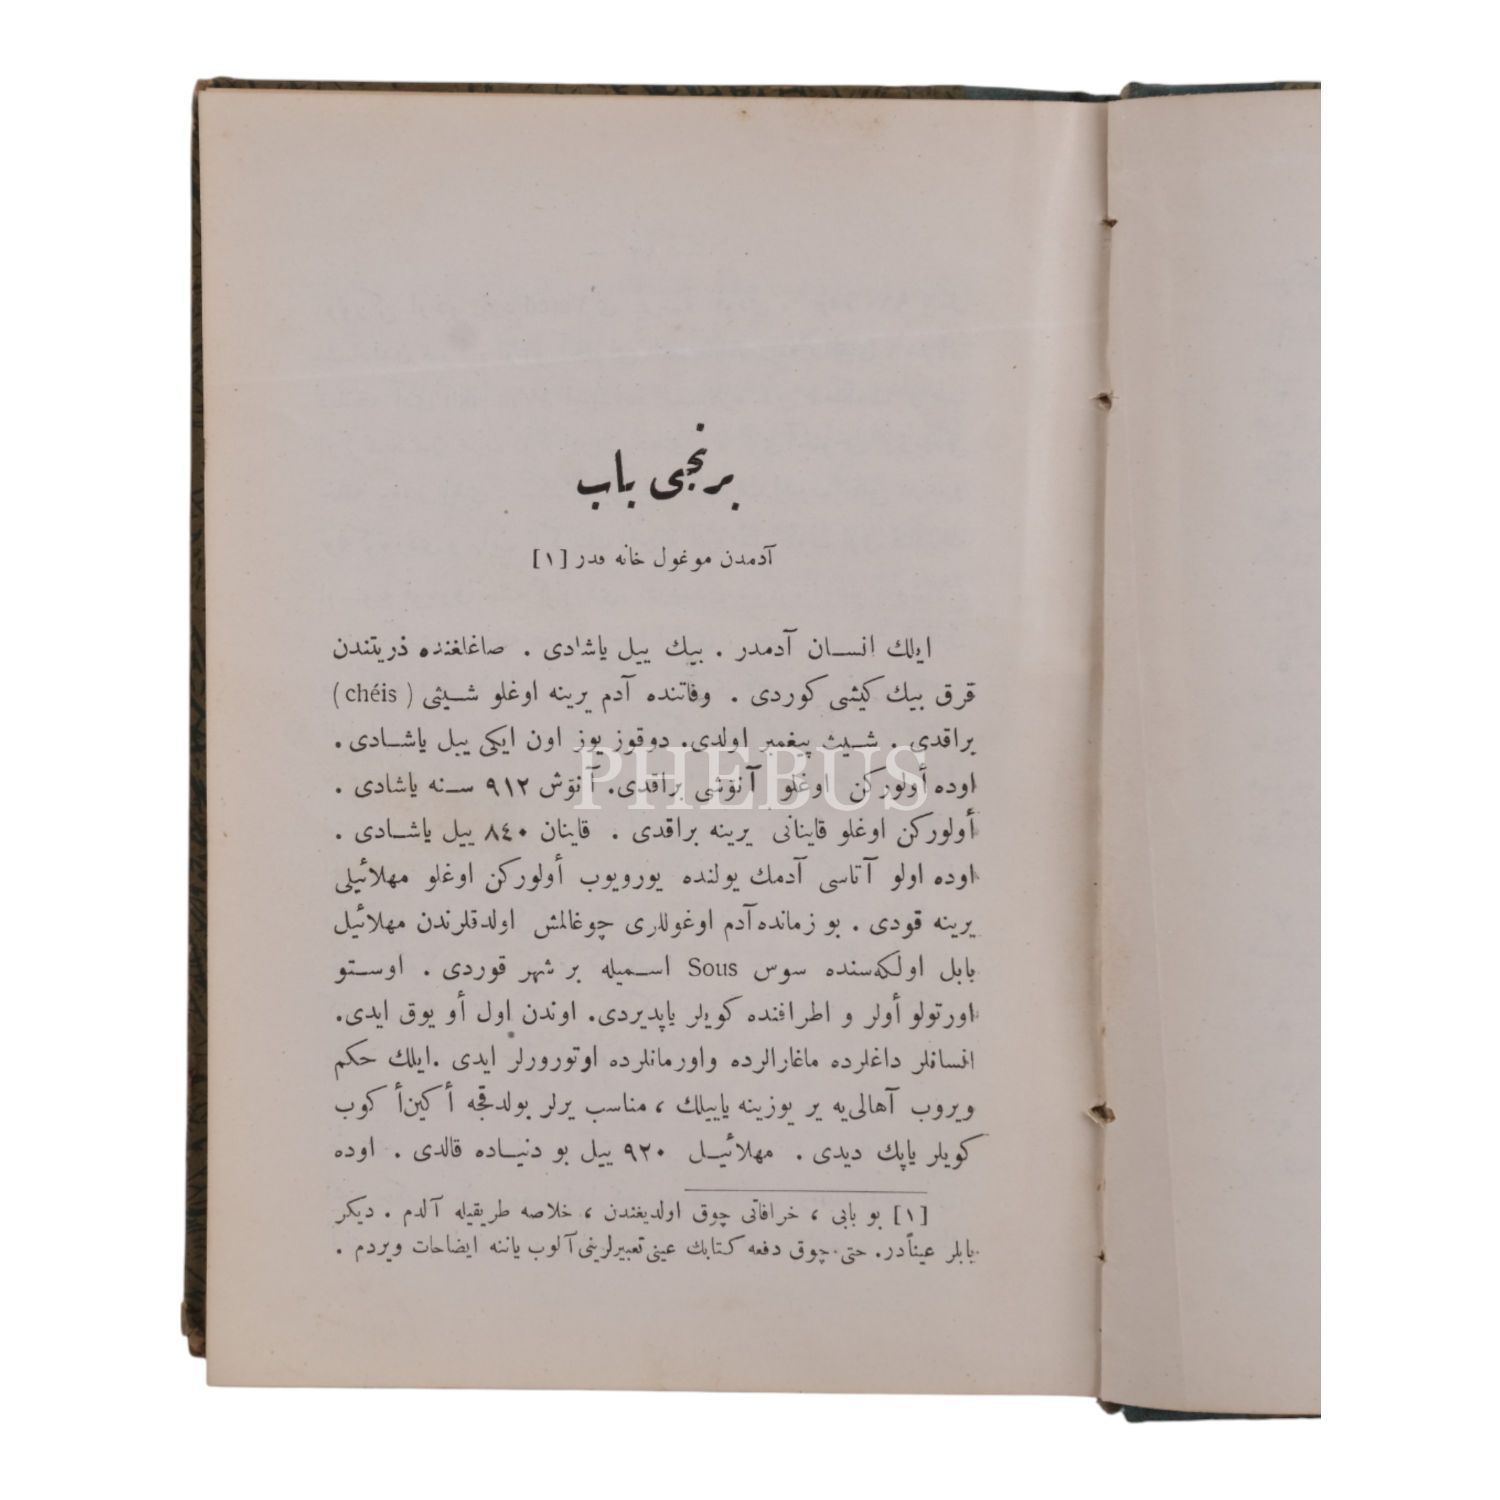 برنجى باب
آدمدن موغول خانه قدر [١]
ايلك انسان آدمدر . بيك ييل ياشادى . صاغلغنده ذريتندن
قرق بيك كيشى كوردى . وفاتنده آدم يرينه اوغلو شيثى ( chéis )
براقدى . شيث پيغمبر اولدى. دوقوز يوز اون ايكى ييل ياشادى .
اوده أولوركن اوغلو آنوشى براقدى. آنوش ٩١٢ سنه ياشادى .
أولوركن اوغلو قاينانى يرينه براقدى . قاينان ٨٤٠ ييل ياشادى .
اوده اولو آتاسى آدمك يولنده يورويوب أولوركن اوغلو مهلائيلى
يرينه قودى . بو زمانده آدم اوغوللرى چوغالمش اولدقلرندن مهلائيل
بابل اولكه‌سنده سوس Sous اسميله بر شهر قوردى . اوستو
اورتولو أولر و اطرافنده كويلر ياپديردى. اوندن اول أو يوق ايدى.
انسانلر داغلرده ماغارالرده واورمانلرده اوتورورلر ايدى .ايلك حكم
ويروب آهالى‌يه ير يوزينه ياييلك ، مناسب يرلر بولدقجه أكين أكوب
كويلر ياپك ديدى . مهلائيل ٩٢٠ ييل بو دنياده قالدى . اوده
[١] بو بابى ، خرافاتى چوق اولديغندن ، خلاصه طريقيله آلدم . ديكر
بابلر عيناًدر. حتى چوق دفعه كتابك عينى تعبيرلرينى آلوب ياننه ايضاحات ويردم .
PHEBUS